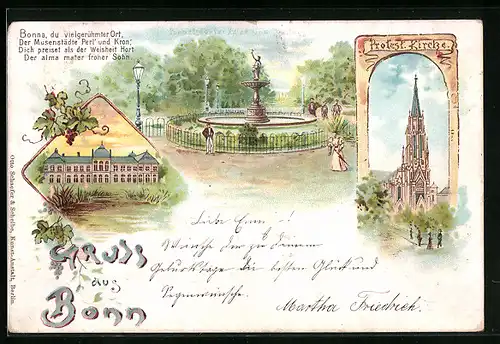 Bonna, du vielgerühmter Ort,
Der Musenstädte Perl' und Kron,
Dich preiset als der Weisheit Hort
Der alma mater froher Sohn.
Protest. Kirche.
Otto Schaefer & Scheibe, Kunst-Anstalt, Berlin.
Gruss
aus
Bonn
Liebe Emmi!
Wünsche dir zu deinem
Geburtstage die besten Glück und
Segenwünsche.
Martha Friedrich.